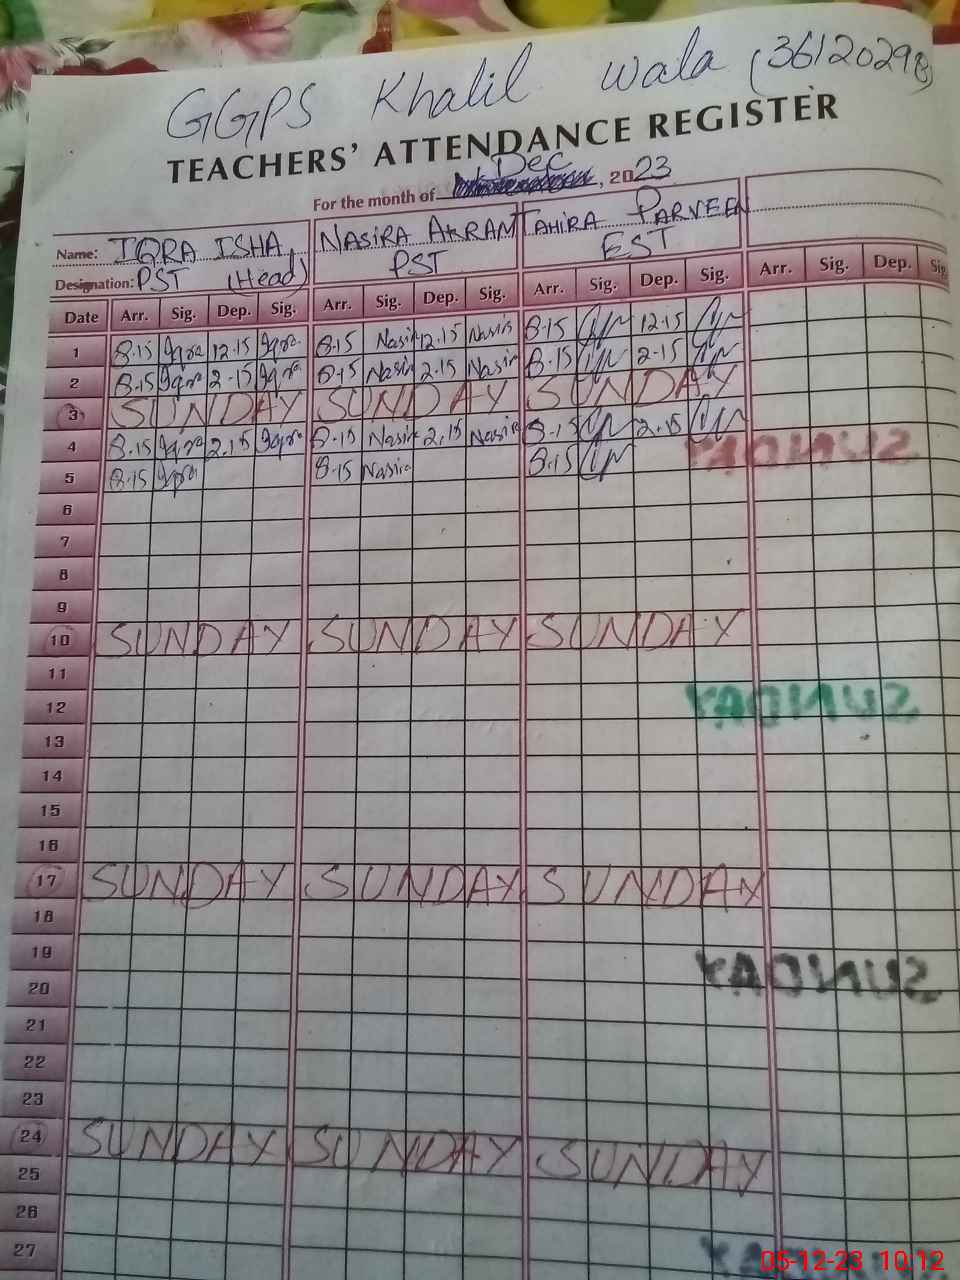 GGPS Khalil Wala (36120298)
TEACHERS' ATTENDANCE REGISTER
For the month of Dec, 2023
Name: IQRA ISHA NASIRA AKRAM TAHIRA PARVEEN
Designation: PST (Head) PST EST
Date Arr. Sig. Dep. Sig. Arr. Sig. Dep. Sig. Arr. Sig. Dep. Sig. Arr. Sig. Dep. Sig.
1 8.15 Iqra 12.15 Iqra 8.15 Nasir 12.15 Nasir 8.15 12.15
2 8.15 Iqra 2.15 Iqra 8.15 Nasir 2.15 Nasir 8.15 2.15
3 SUNDAY SUNDAY SUNDAY
4 8.15 Iqra 2.15 Iqra 8.15 Nasir 2.15 Nasir 8.15 2.15
SUNDAY
5 8.15 Iqra 8.15 Nasir 8.15
6
7
8
9
10 SUNDAY SUNDAY SUNDAY
11
12 SUNDAY
13
14
15
16
17 SUNDAY SUNDAY SUNDAY
18
19
SUNDAY
20
21
22
23
24 SUNDAY SUNDAY SUNDAY
25
26
27
05-12-23 10.12